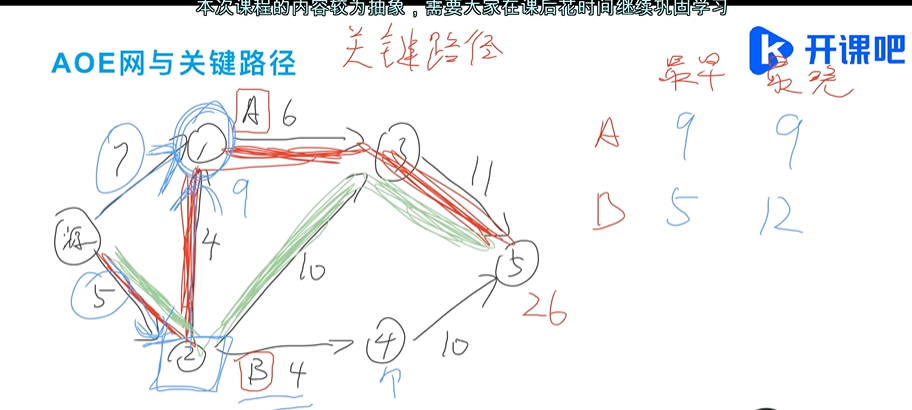 本次课程的内容较为抽象，需要大家在课后花时间继续巩固学习
AOE网与关键路径
关键路径
开课吧
最早 最晚
A 9 9
B 5 12
A 6
7
1
3
11
9
源
4
5
10
5
26
2
4
10
B 4
个